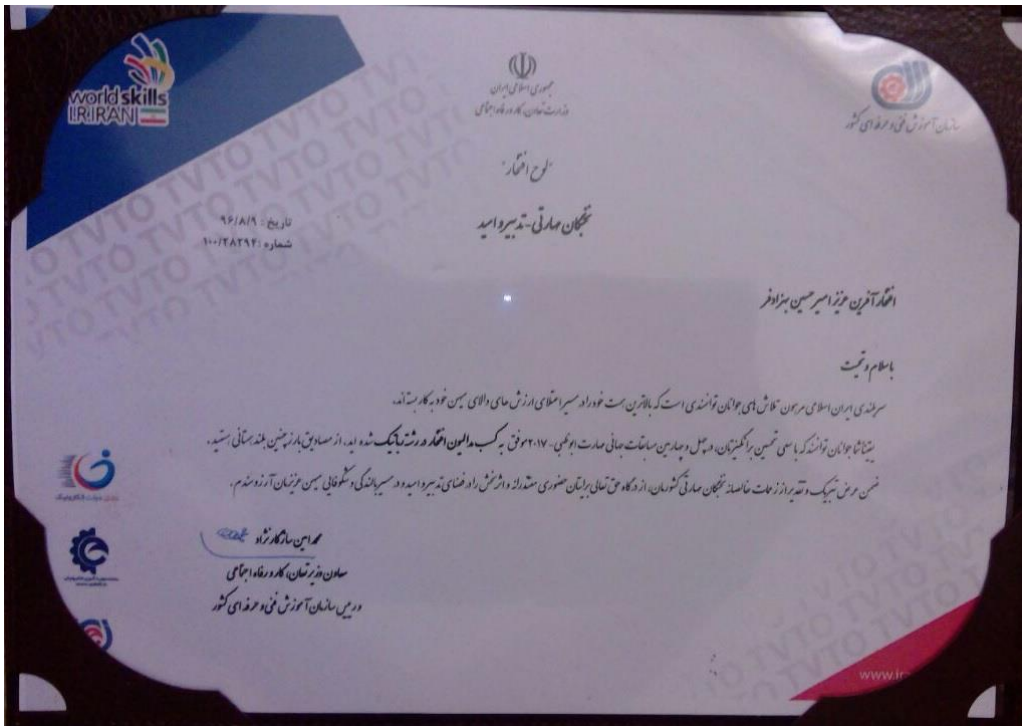 worldskills
I.R.IRAN
جمهوری اسلامی ایران
وزارت تعاون، کار و رفاه اجتماعی
سازمان آموزش فنی و حرفه ای کشور
"لوح افتخار"
نخبگان مهارتی - تدبیر و امید
تاریخ : ۹۶/۸/۹
شماره : ۱۰۰/۲۸۲۹۴
افتخار آفرین عزیز امیر حسین بهزادفر
با سلام و تحیت
سربلندی ایران اسلامی مرهون تلاش های جوانان توانمندی است که بالاترین همت خود را در مسیر اعتلای ارزش های والای میهن خود به کار بسته اند.
یقینا شما جوانان توانمند که با سعی تحسین برانگیزتان، در چهل و چهارمین مسابقات جهانی مهارت ابوظبی - ۲۰۱۷ موفق به کسب مدالیون افتخار در رشته رباتیک شده اید، از مصادیق بارز چنین بلند همتانی هستید.
ضمن عرض تبریک و تقدیر از زحمات خالصانه نخبگان مهارتی کشورمان، از درگاه حق تعالی برایتان حضوری مقتدرانه و اثربخش را در فضای تدبیر و امید و در مسیر بالندگی و شکوفایی میهن عزیزمان آرزومندم.
محمد امین سازگارنژاد
معاون وزیر تعاون، کار و رفاه اجتماعی
و رییس سازمان آموزش فنی و حرفه ای کشور
TVTO
www.ir